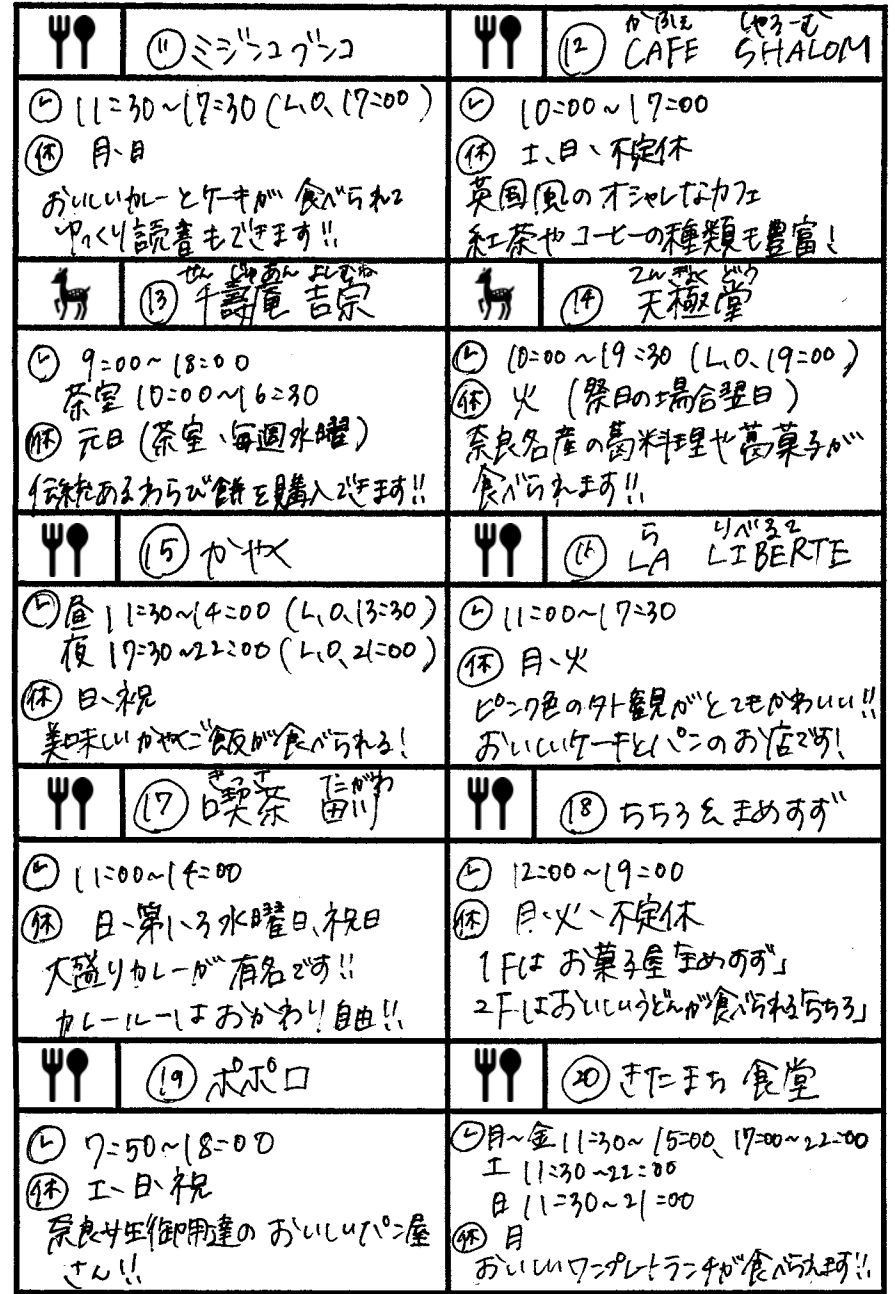 ⑪ ミジンコブンコ
11:30~17:30(L.O.17:00)
休 月、日
おいしいカレーとケーキが食べられて
ゆっくり読書もできます!!
かふぇ しゃろーむ
⑫ CAFE SHALOM
10:00~17:00
休 土、日、不定休
英国風のオシャレなカフェ
紅茶やコーヒーの種類も豊富!
せんじゅあん よしむね
⑬ 千壽庵 吉宗
9:00~18:00
茶室 10:00~16:30
休 元日(茶室、毎週水曜)
伝統あるわらび餅を購入できます!!
てんぎょくどう
⑭ 天極堂
10:00~19:30(L.O.19:00)
休 火(祭日の場合翌日)
奈良名産の葛料理や葛菓子が
食べられます!!
⑮ かやく
昼 11:30~14:00(L.O.13:30)
夜 17:30~22:00(L.O.21:00)
休 日、祝
美味しいかやくご飯が食べられる!
ら りべるて
⑯ LA LIBERTE
11:00~17:30
休 月、火
ピンク色の外観がとてもかわいい!!
おいしいケーキとパンのお店です!
きっさ たがわ
⑰ 喫茶 田川
11:00~14:00
休 日、第1、3水曜日、祝日
大盛りカレーが有名です!!
カレールーはおかわり自由!!
⑱ ちちろ&まめすず
12:00~19:00
休 月、火、不定休
1Fはお菓子屋「まめすず」
2Fはおいしいうどんが食べられる「ちちろ」
⑲ ポポロ
7:50~18:00
休 土、日、祝
奈良女生御用達のおいしいパン屋
さん!!
⑳ きたまち食堂
月~金 11:30~15:00、17:00~22:00
土 11:30~22:00
日 11:30~21:00
休 月
おいしいワンプレートランチが食べられます!!